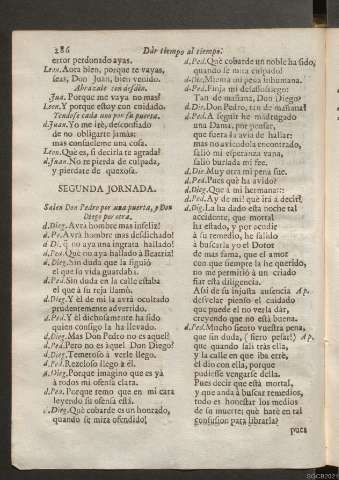 286 Dàr tiempo al tiempo.
error perdonado ayas.
Leon. Aora bien, porque te vayas,
seas, Don Juan, bien venido.
Abrazale con desdèn.
Jua. Porque me vaya no mas?
Leon. Y porque estoy con cuidado.
Tendose cada uno por su puerta.
d. Juan. Yo me irè, desconfiado
de no obligarte jamàs:
mas confueleme una cosa.
Leon. Què es, si decirla te agrada?
d. Juan. No te pierda de culpada,
y pierdate de quexosa.
SEGUNDA JORNADA.
Salen Don Pedro por una puerta, y Don
Diego por otra.
d. Dieg. Avrà hombre mas infeliz!
d. Pe. Avrà hombre mas desdichado!
d. Di. q̃ no aya una ingrata hallado!
d. Ped. Que no aya hallado à Beatriz!
d. Dieg. Sin duda que la siguiò
el que su vida guardaba.
d. Ped. Sin duda en la calle estaba
el que à su reja llamò.
d. Dieg. Y èl de mi la avrà ocultado
prudentemente advertido.
d. Ped. Y èl dichosamente ha sido
quien consigo la ha llevado.
d. Dieg. Mas Don Pedro no es aquel?
d. Ped. Pero no es aquel Don Diego?
d. Dieg. Temeroso à verle llego.
d. Ped. Rezeloso llego à èl.
d. Dieg. Porque imagino que es yà
à todos mi ofensa clara.
d. Ped. Porque temo que en mi cara
leyendo su ofensa està.
d. Dieg. Què cobarde es un honrado,
quando se mira ofendido!
d. Ped. Què cobarde un noble ha sido,
quando se mira culpado!
d. Die. Mienta mi pena inhumana.
d. Ped. Finja mi desassossiego:
Tan de mañana, Don Diego?
d. Die. Don Pedro, tan de mañana?
d. Ped. A seguir he madrugado
una Dama, por pensar,
que fuera la avia de hallar:
mas no aviendola encontrado,
saliò mi esperanza vana,
saliò burlada mi fee.
d. Die. Muy otra mi pena fue.
d. Ped. Pues què ha avido?
d. Dieg. Que à mi hermana::
d. Ped. Ay de mì! què irà à decir?
d. Dieg. La ha dado esta noche tal
accidente, que mortal
ha estado, y por acudir
à su remedio, he salido
à buscarla yo el Dotor
de mas fama, que el amor
con que siempre la he querido,
no me permitiò à un criado
fiar esta diligencia.
Assi de su injusta ausencia Ap.
desvelar pienso el cuidado
que puede el no verla dàr,
creyendo que no està buena.
d. Ped. Mucho siento vuestra pena,
que sin duda, (fiero pesar!) Ap.
que quando salì tràs ella,
y la calle en que iba errè,
èl diò con ella, porque
pudiesse vengarse della.
Pues decir que està mortal,
y que anda à buscar remedios,
todo es honestar los medios
de su muerte: què harè en tal
confusion para librarla?
pues
SGCB2021